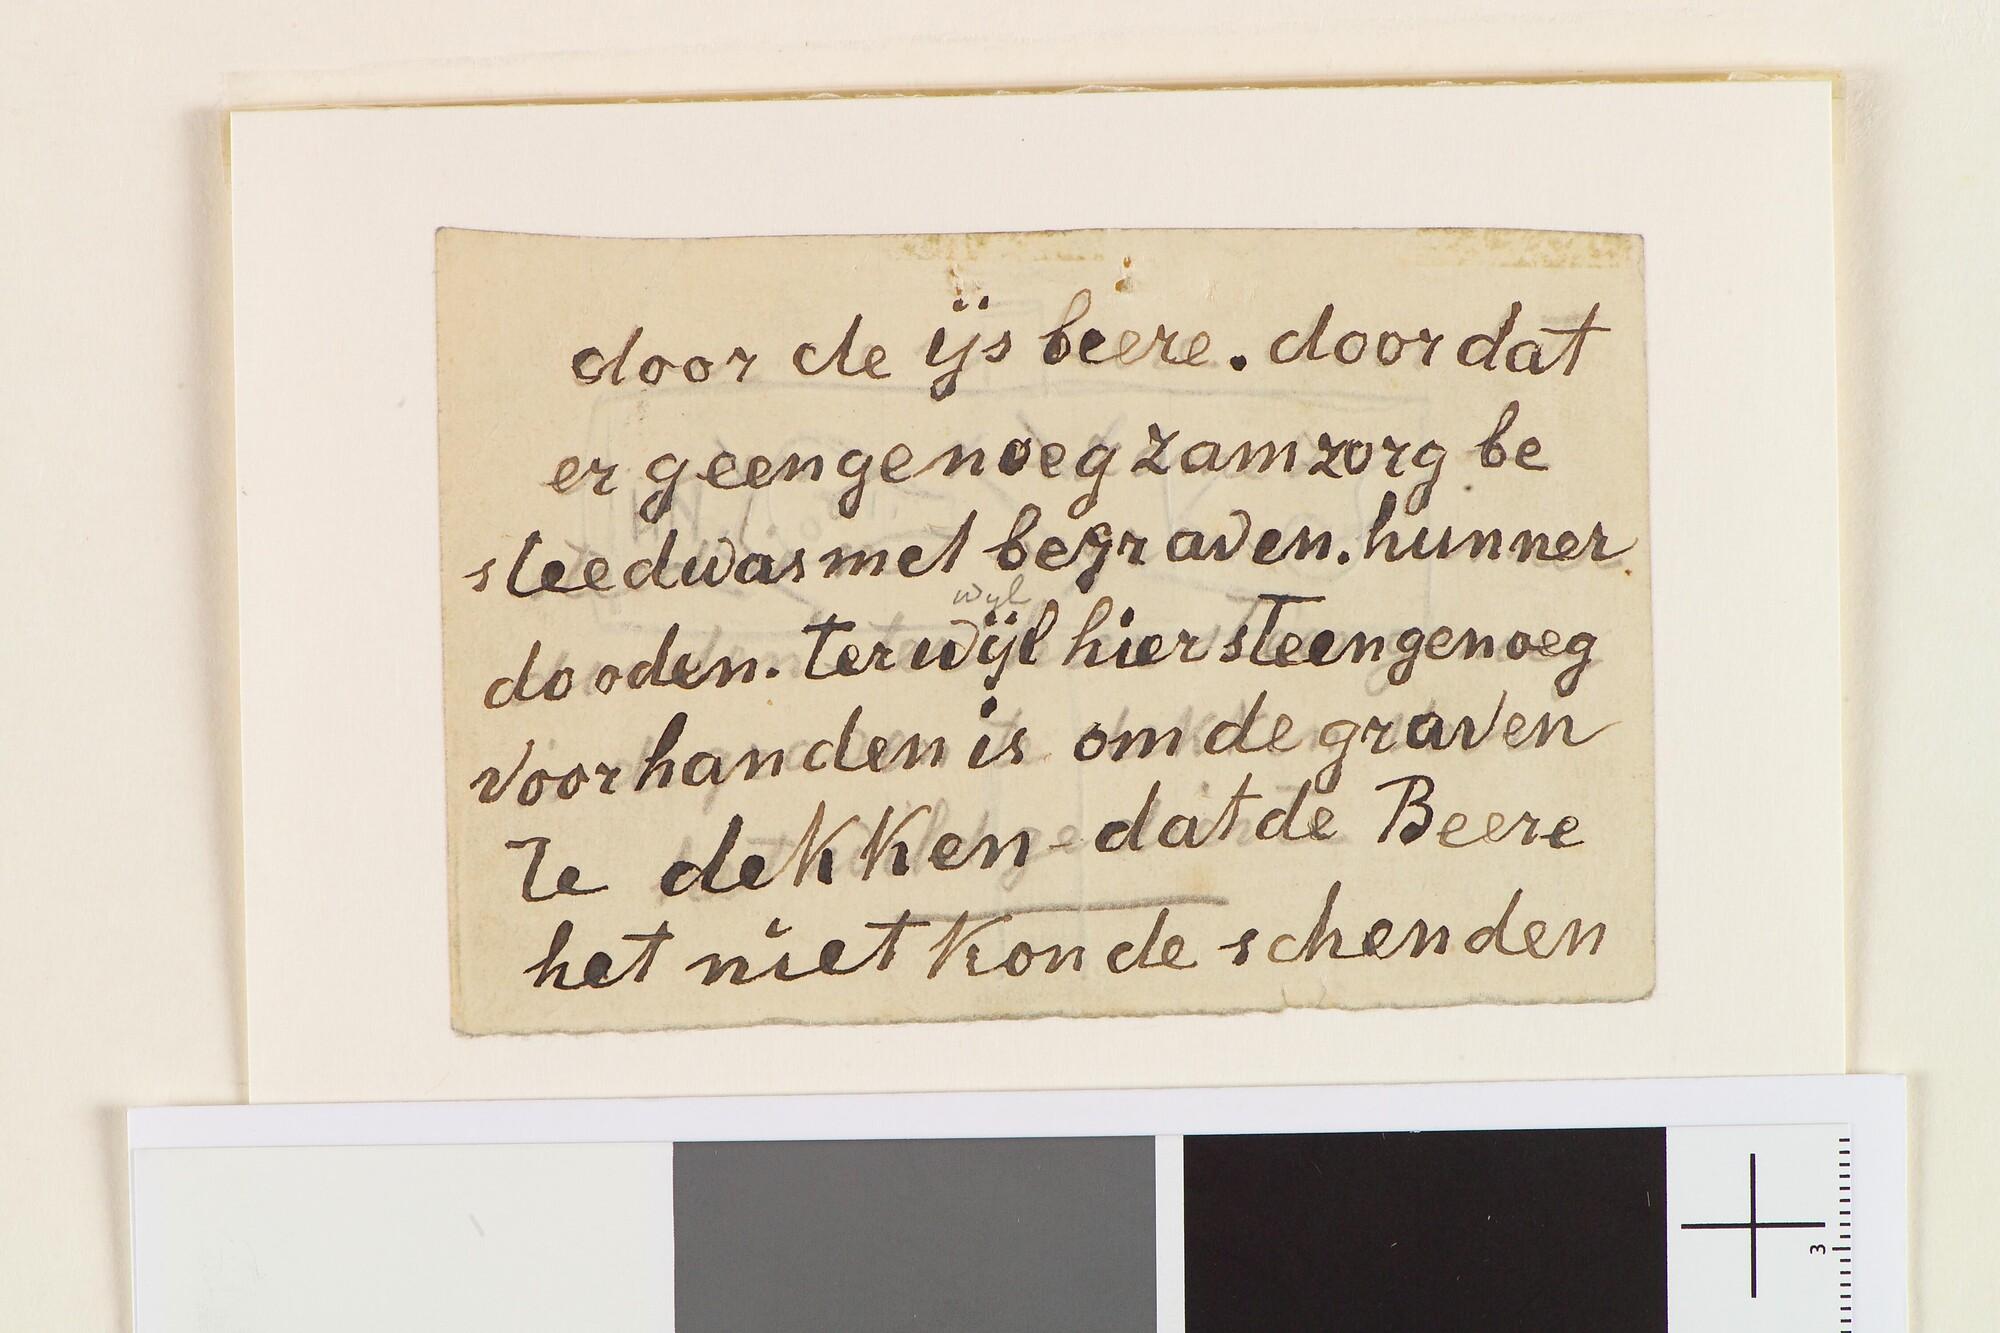 door de ijs beere. doordat
er geen genoegzam zorg be
steed was met begraven. hunner
wyl
dooden. terwijl hier steen genoeg
voorhanden is om de graven
Te dekken - dat de Beere
het niet konde schenden
3